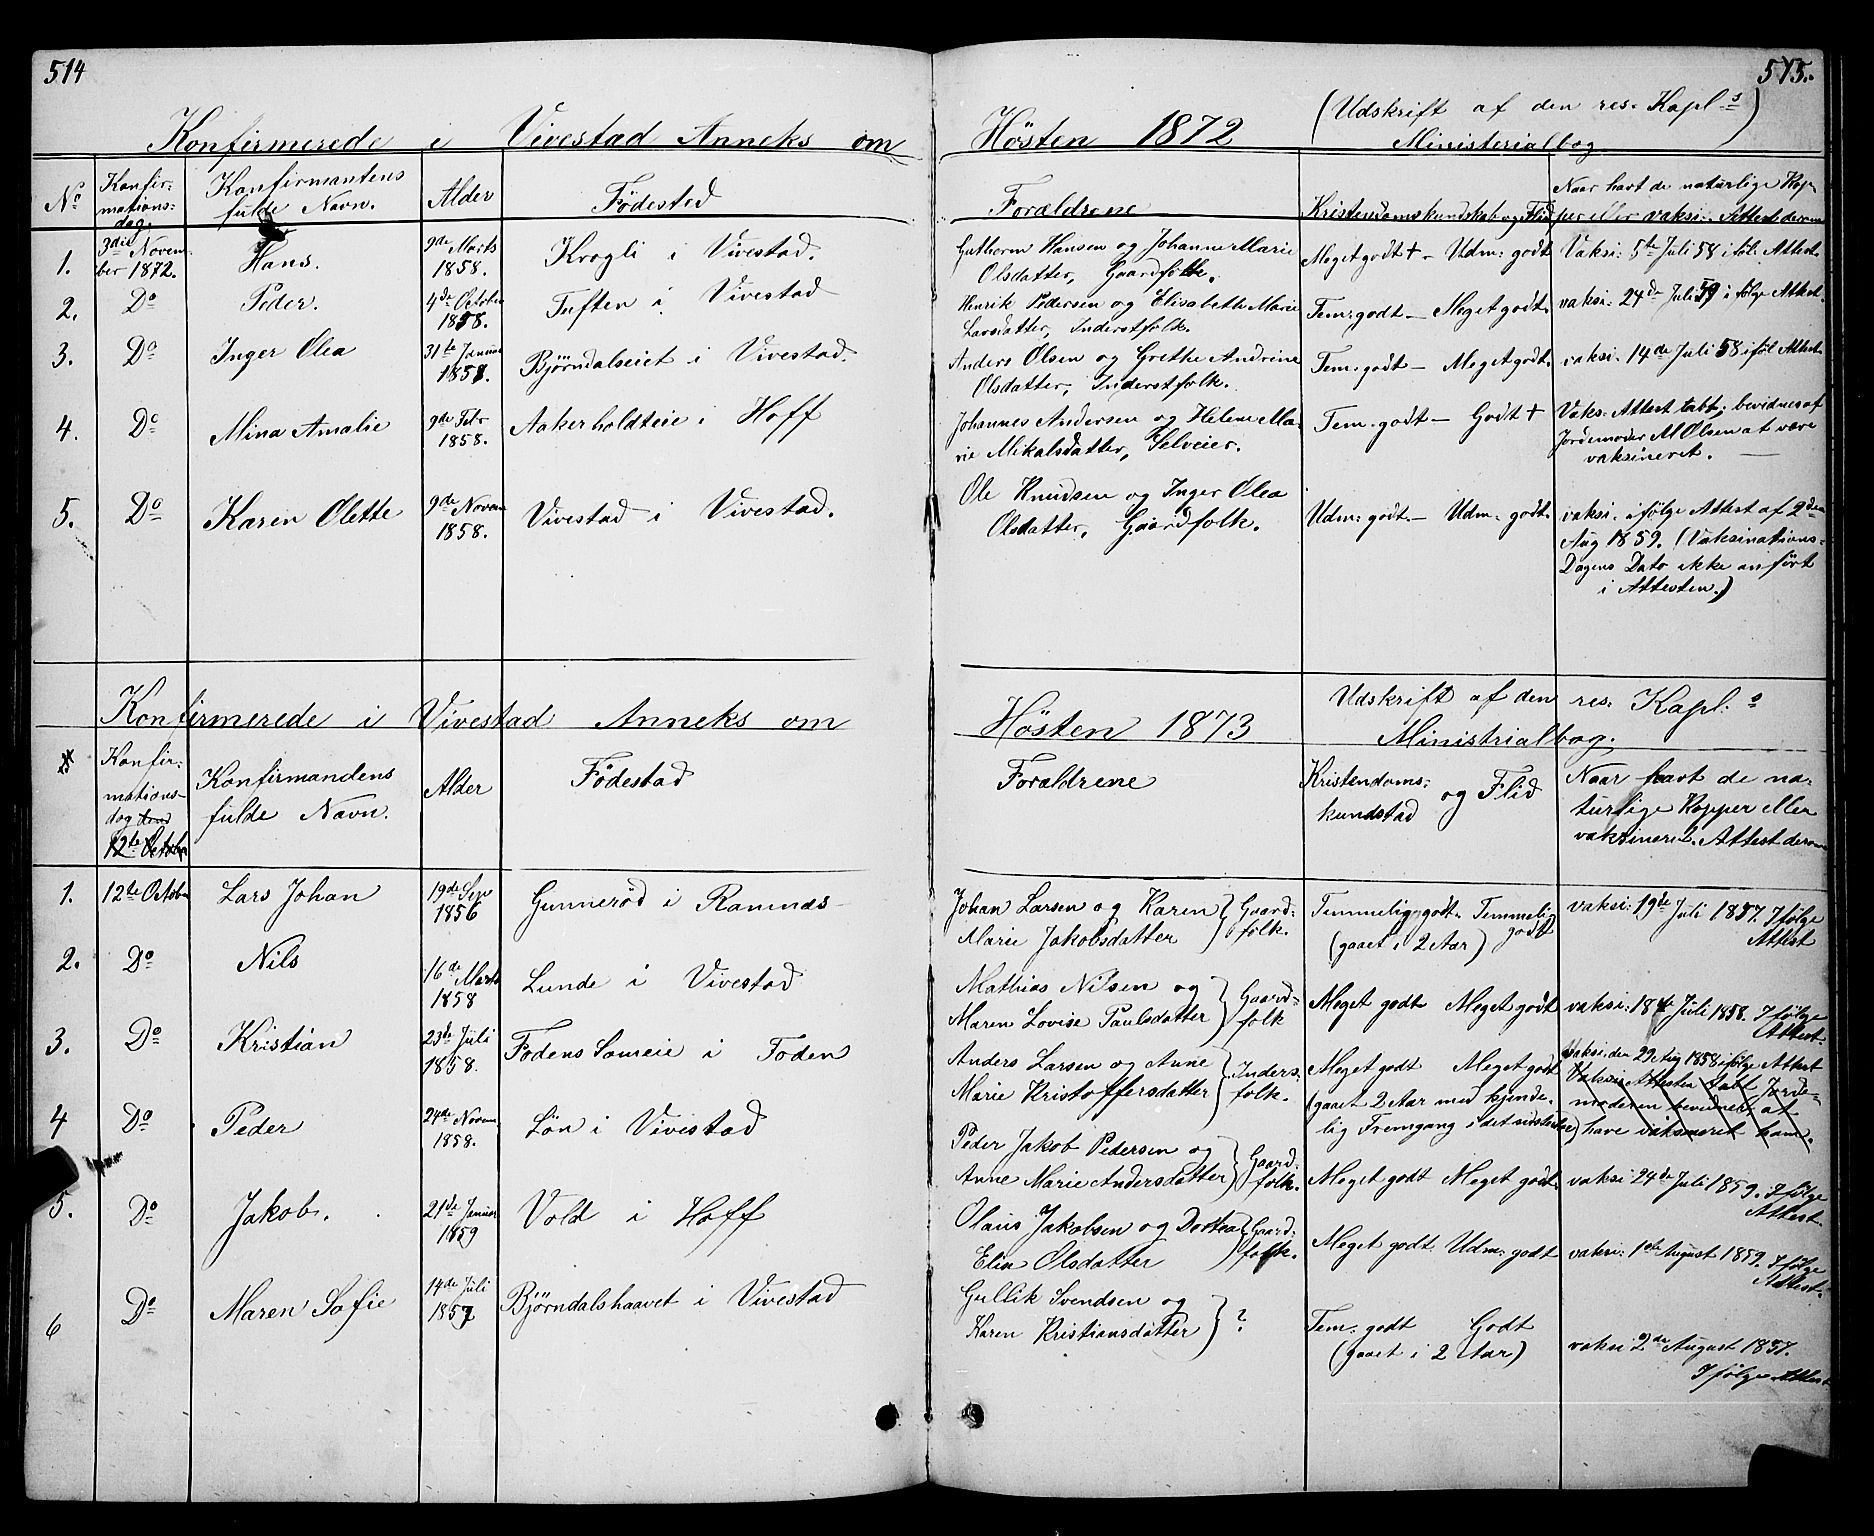 514
Konfirmerede i Vivestad Anneks om
No
Konfir-
mations-
dag.
Konfirmantens
fulde Navn.
Alder
Födested
1.
3die Novem-
ber 1872.
Hans.
9de Marts
1858.
Krogli i Vivestad.
2.
Do
Peder.
4de October
1858.
Tuften i Vivestad
3.
Do
Inger Olea
31te Januar
1857.
Bjørndalseiet i Vivestad.
4.
Do
Mina Amalie
9de Febr
1858.
Aakerholdteie i Hoff
5.
Do
Karen Olette
9de Novem
1858.
Vivestad i Vivestad.
Konfirmerede i Vivestad Anneks om
Konfir-
mations-
dag den
12te October
Konfirmandens
fulde Navn.
Alder
Födestad
1.
12te October
Lars Johan
19de Sep
1856
Gunnerød i Ramnæs
2.
Do
Nils
16de Marts
1858
Lunde i Vivestad
3.
Do
Kristian
23de Juli
1858.
Fodens Sameie i Foden
4
Do
Peder
24de Novem
1858.
Lön i Vivestad
5.
Do
Jakob.
21de Januar
1859
Vold i Hoff
6
Do
Maren Sofie
14de Juli
1857
Bjørndalshaavet i Vivestad
515.
Hösten 1872
(Udskrift af den res. Kapl-s
Ministerialbog)
Forældrene
Kristendomskundskab og Flid
Naar havt de naturlige Kop-
per eller vaksi: Attest derom
Guthorm Hansen og Johanne Marie
Olsdatter, Gaardfolk.
Meget godt + - Udm: godt
Vaksi: 5te Juli 58 iföl: Attest
Henrik Pedersen og Elisabeth Marie
Larsdatter, Inderstfolk.
Tem: godt - Meget godt.
vaksi: 24de Juli 59 i følge Attest.
Anders Olsen og Grethe Andrine
Olsdatter, Inderstfolk.
Tem: godt - Meget godt.
vaksi. 14de Juli 58 iføl Attest
Johannes Andersen og Helene Ma-
rie Mikalsdatter, Selveier.
Tem. godt - Godt +
Vaks: Attest tabt; bevidnes af
Jordemoder M Olsen at være
vaksineret.
Ole Knudsen og Inger Olea
Olsdatter, Gaardfolk.
Udm: godt. - Udm: godt.
vaksi. ifølge Attest af 2den
Aug 1859. (Vaksinations-
Dagens Dato ikke anført
i Attesten.)
Hösten 1873
Udskrift af den res: Kapl: s
Ministrialbog.
Forældrene
Kristendoms-
kundstad
og Flid
Naar havt de na-
turlige Kopper eller
vaksineret. Attest derom
Johan Larsen og Karen
Marie Jakobsdatter
Gaard-
folk.
Temmelig godt. Temmelig
godt
(gaaet i 2 Aar)
vaksi: 19de Juli 1857. Ifølge
Attest
Mathias Nilsen og
Maren Lovise Paulsdatter
Gaard-
folk
Meget godt Meget godt
vaksi: 18de Juli 1858. Ifølge
Attest.
Anders Larsen og Anne
Marie Kristoffersdatter
Inders-
folk.
Meget godt Meget godt
(gaaet 2 Aar med kjende-
lig Fremgang i det sidste
vaksi. den 29 Aug 1858 ifølge Attest
Vaksi Attesten tabt Jorde-
moderen bevidner at
have vaksineret ham.
Peder Jakob Pedersen og
Anne Marie Andersdatter
Gaard-
folk.
Meget godt Meget godt.
vaksi 24de Juli 1859. Ifølge
Attest.
Olaus Jakobsen og Dortea
Elia Olsdatter
Gaard-
folk.
Meget godt. Udm: godt
vaksi: 1ste August 1859. Ifølge
Attest.
Gullik Svendsen og
Karen Kristiansdatter
?
Tem: godt Godt
(gaaet i 2 Aar)
vaksi 2de August 1857.
Ifølge Attest